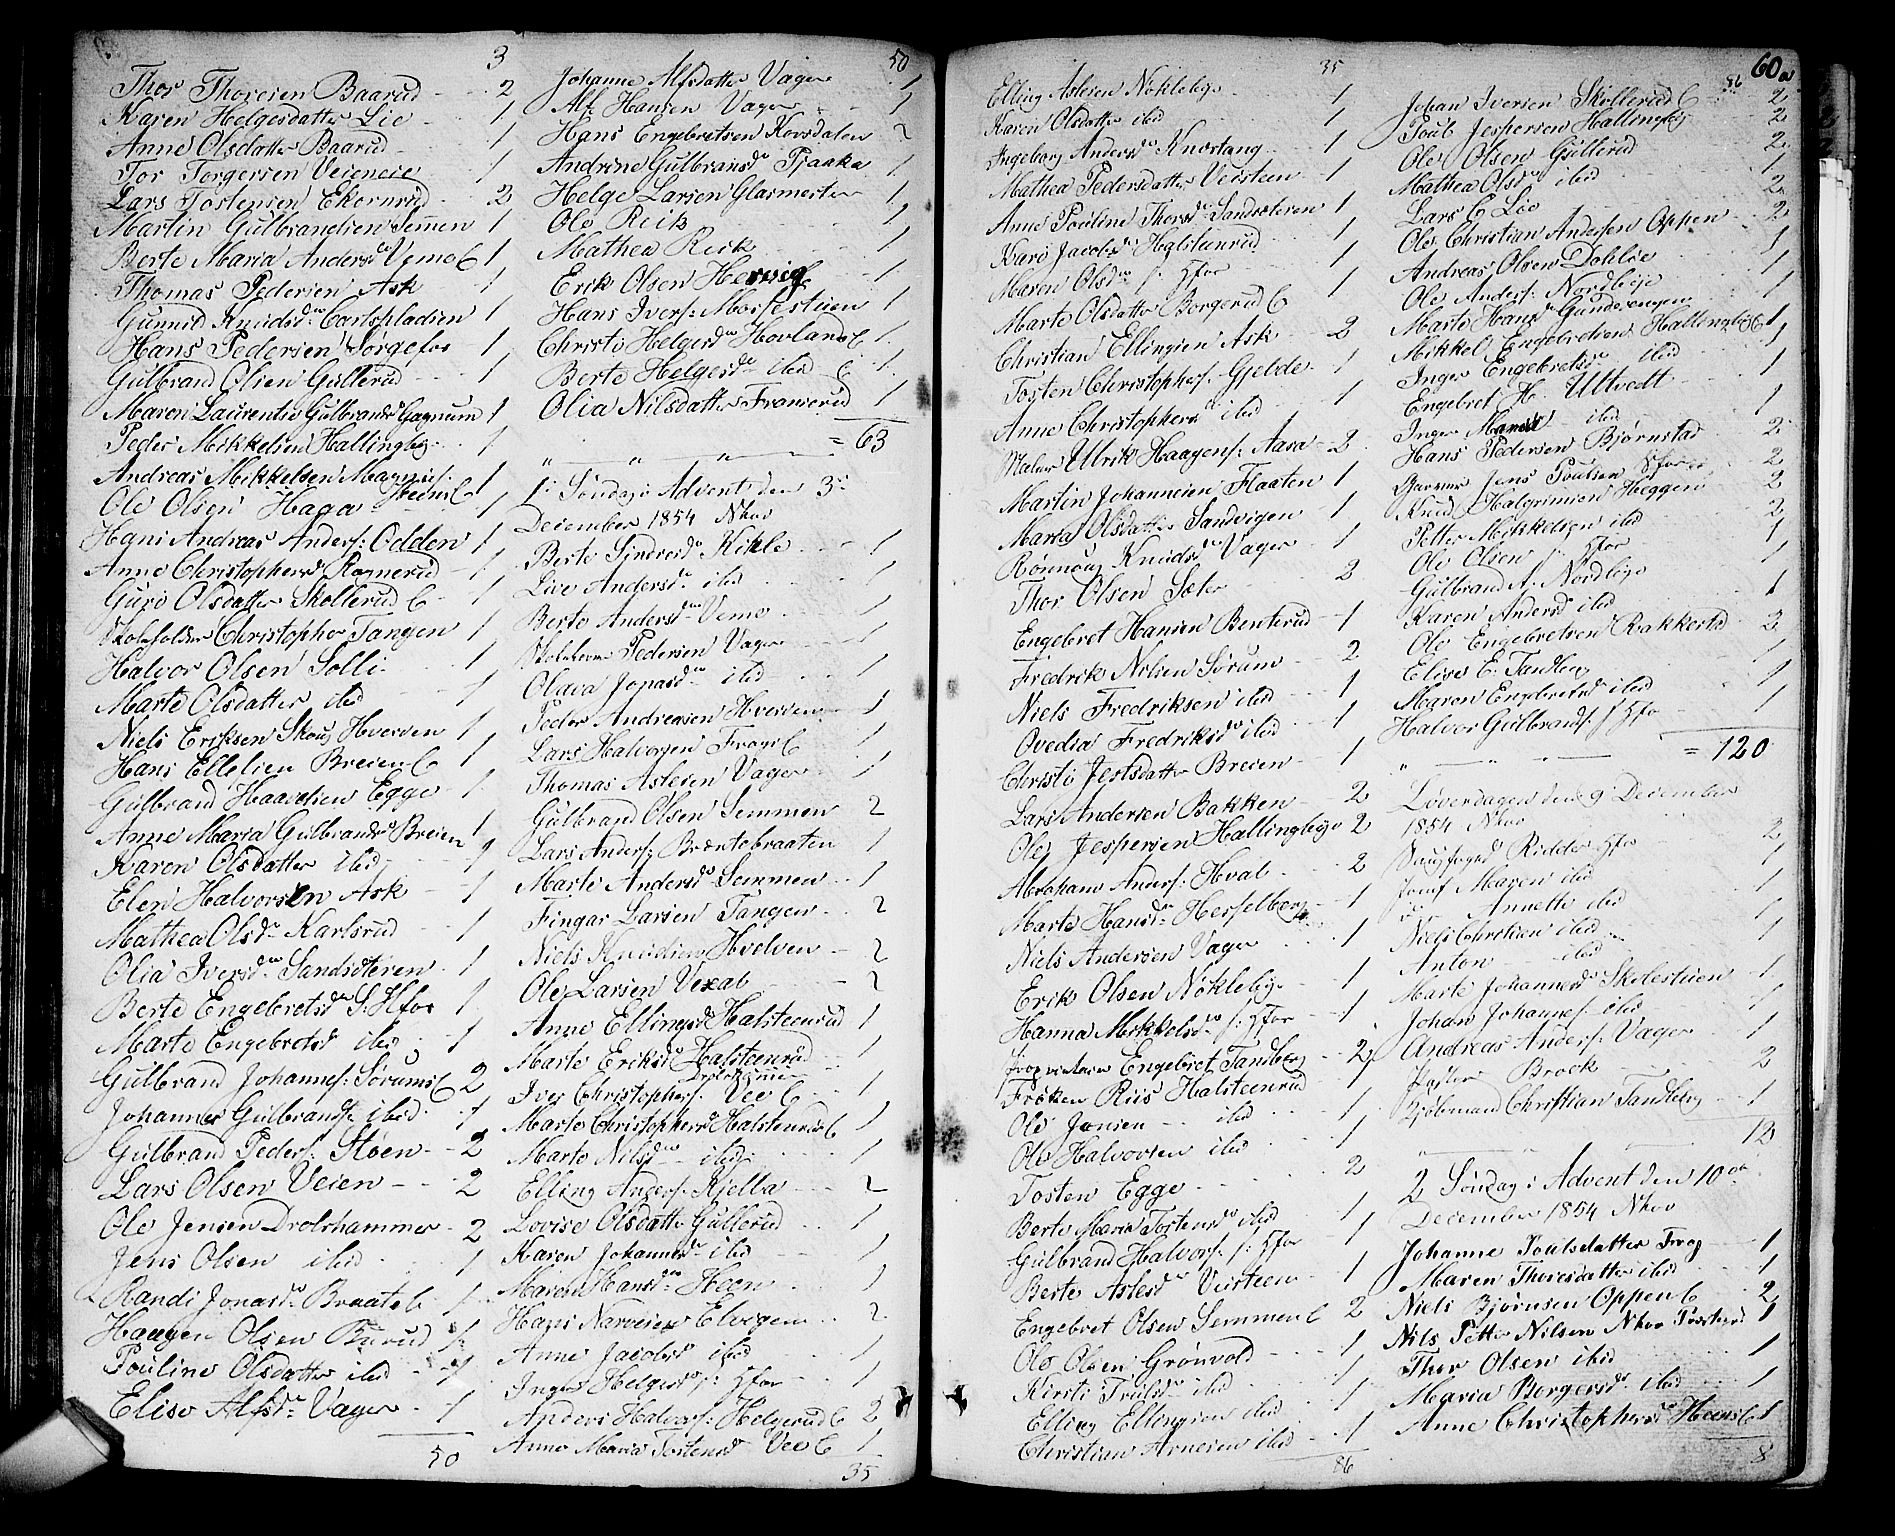 3
Thor Thoresen Baarud 2
Karen Helgesdatter Lie 1
Anne Olsdatter Baarud 1
Tor Torgersen Veieneie 1
Lars Tostensen Ekornrud 2
Martin Gulbrandsen Semmen 1
Berte Maria Andersd Vemo E 1
Thomas Pedersen Ask 1
Gunnild Knudsdr 1
Hans Pedersen Sorgefos 1
Gulbrand Olsen Gullerud 1
Maren Laurentse Gulbrandsd Gagnum 1
Peder Mikkelsen Hallingby 1
Andreas Mikkelsen
Heens E 1
Ole Olsen Haga 1
Hans Andreas Anders: Odden 1
Anne Christophersd Ragnerud 1
Guri Olsdatter Skollerud E 1
Skoleholder Christopher Tangen 1
Halvor Olsen Solli 1
Marte Olsdatter ibid 1
Niels Eriksen Skou Hverven 1
Hans Ellefsen Breien E 1
Gulbrand Haavelsen Egge 1
Anne Maria Gulbrandsd Breien 1
Karen Olsdatter ibid 1
Elen Halvorsen Ask 1
Mathea Olsdr Karlsrud 1
Olia Iversdr Sandsøteren 1
Berte Engebretsdr S: Hfos 1
Marte Engebretsd ibid 1
Gulbrand Johannes: Sørums E 2
Johannes Gulbrands: ibid 1
Gulbrand Peders: Støen 2
Lars Olsen Veien 2
Ole Jensen Drolshammer 2
Jens Olsen ibid 1
Randi Jonasdr Braate E 1
Haagen Olsen Burud 1
Pouline Olsdatter ibid 1
Elise Alfsdr Vager 1
50
50
Johanne Alfsdatter Vager 1
Alf Hansen Vager 1
Hans Engebretsen Korsdalen 2
Andrine Gulbransdr Pjaaka 1
Helge Larsen Glasmester 1
Ole Reik 1
Mathea Reik 1
Erik Olsen Hervig 1
Hans Ivers: Morfestuen 1
Christi Helgesdr Hovland E 1
Berte Helgesdr ibid E 1
Olia Nilsdatter Framrud 1
= 63
1: Søndag i Advent den 3die
December 1854 Nhov
Berte Sindresdr Kihle 1
Live Andersdr ibid 1
Berte Andersdr Vemo 1
Skoleherrer Pedersen Vager 1
Olava Jonasdr ibid 1
Peder Andreasen Hverven 1
Lars Halvorsen Frogs E 1
Thomas Aslesen Vager 1
Gulbrand Olsen Semmen 2
Lars Anders: Bræntebraaten 1
Marte Andersdr Semmen 1
Fingar Larsen Tangen 2
Niels Knudsen Hvelven 2
Ole Larsen Vexal 2
Anne Ellingsd Halsteenrud 1
Marte Eriksdr Halsteenrud 1
Iver Christophers: Vee E 1
Marte Christophersd Halsteenrud E 1
Marte Nilsdr ibid 1
Elling Anders: Kjella 2
Lovise Olsdatter Gullerud 1
Karen Johannesdr ibid 1
Maren Hansdr Heen 1
Hans Narvesen Elvigen 2
Anne Jacobsd ibid 1
Inger Helgesdr /: Hfos 1
Anders Halvors: Helgerud E 2
Anne Maria Tostensd Vee E 1
35
35
Elling Aslesen Nøkleby 1
Karen Olsdatter ibid 1
Ingeborg Andersdr Knestang 1
Mathea Pedersdatter Veisteen 1
Anne Pouline Thorsdr Sandsøteren 1
Kari Jacobsdr Halsteenrud 1
Maren Olsdr /: Hfos 1
Marte Olsdatter Borgerud E
Christian Ellingsen Ask 2
Tosten Christophers: Gjelde 1
Anne Christophersdr ibid 1
Maler Ulrik Haagens: Aasa 2
Martin Johannesen Flaaten 1
Maria Olsdatter Sandvigen 1
Rønnoug Knudsdr Vager 1
Thor Olsen Sæter 2
Engebret Hansen Benterud 1
Fredrik Nilsen Sørum 2
Niels Fredriksen ibid 1
Ovedia Fredriksdr ibid 1
Christi Jestsdatter Breien 1
Lars Andersen Bakken 2
Ole Jespersen Hallingby 2
Abraham Anders: Hval 2
Marte Hansdr Hesselberg 1
Niels Andersen Vager 1
Erik Olsen Nøkleby 1
Hanna Mikkelsdr /: Hfos 1
Proprietær Engebret Tandberg 2
Frøken Riis Halsteenrud 1
Ole Jonsen ibid 1
Ole Halvorsen ibid 1
Tosten Egge 2
Berte Maria Tostensd ibid 1
Gulbrand Halvors: /: Hfos 1
Berte Aslesdr Veisteen 1
Engebret Olsen Semmen E 2
Ole Olsen Grønvold 1
Kirsti Trulsdr ibid 1
Elling Ellingsen ibid 1
Christian Arnesen ibid 1
86
60a
86
Johan Iversen Skollerud E 2
Poul Jespersen Hallingby 2
Ole Olsen Gullerud 2
Mathea Olsdr ibid 1
Lars E Lie 2
Ole Christian Andersen Oppen 2
Andreas Olsen Dahløe 1
Ole Anders: Nordbye 1
Marte Hansd Gundersengen 1
Mikkel Engebretsen Hallingby E 1
Inger Engebretsdr ibid 1
Engebret H. Ultvedt 1
Inger Hansdr ibid 1
Hans Pedersen Bjørnstad 2
Garver Jens Poulsen Hfos 2
Knud Halgrimsen Heggen 2
Petter Mikkelsen ibid 2
Ole Olsen /: Hfos 1
Gulbrand A: Nordbye 1
Karen Andersd ibid 1
Ole Engebretsen Rakkestad 2
Elise E. Tandberg 1
Maren Engebretsd ibid 1
Halvor Gulbrands: /: Hfos 1
= 120
Løverdagen den 9 December
1854 Nhov
Ridder Hfos 2
Josef Maren ibid 1
Annette ibid 1
Niels Christian ibid 1
Anton ibid 1
Marte Johannesdr Skolestuen 1
Johan Johannes: ibid 1
Andreas Anders: Vager 1
Pastor Brock 2
Kjøbmand Christian Tandberg 1
13
2 Søndag i Advent den 10de
December 1854 Nhov
Johanne Poulsdatter Frog 1
Maren Thoresdatter ibid 1
Niels Bjørnsen Oppen E 2
Nils Petter Nilsen Nhov Præstegd 1
Thor Olsen ibid 1
Maria Borgersdr ibid 1
Anne Christophersdr Heens E 1
8